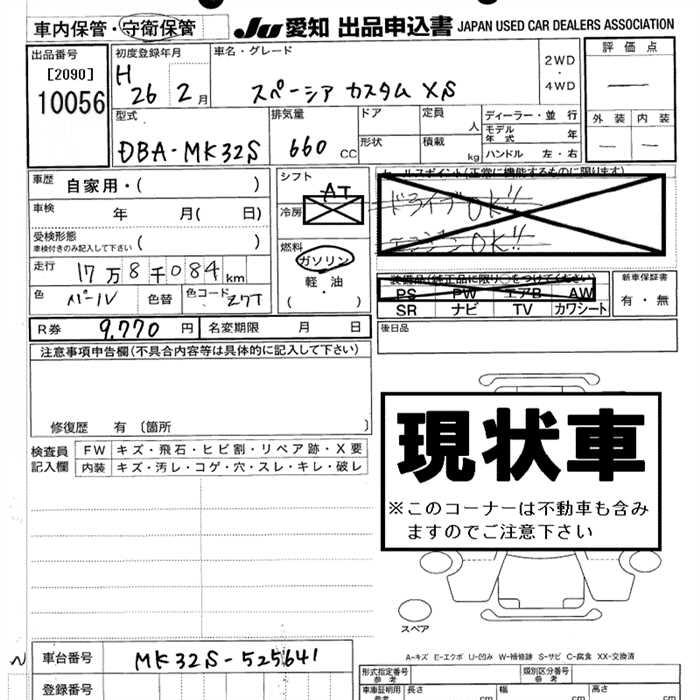 車内保管・守衛保管 JU 愛知 出品申込書 JAPAN USED CAR DEALERS ASSOCIATION
出品番号 初度登録年月 車名・グレード 2WD ・ 4WD 評価点
[2090] H 26 2月 スペーシア カスタム XS
10056
型式 排気量 ドア 定員 人 ディーラー・並行 外装 内装
DBA-MK32S 660 CC 形状 積載 kg モデル年式 年
ハンドル 左・右
車歴 自家用・( ) シフト AT セールスポイント(正常に機能するものに限ります)
車検 年 月( 日) 冷房 ドライブOK!!
受検形態 車検付きのみ記入して下さい ( ) 燃料 エンジンOK!!
走行 17万8千084km ガソリン 装備品(純正品に限り○をつけてください) 新車保証書
色 パール 色替 色コード Z7T 軽・油 ( ・ ) PS PW エアB AW 有・無
SR ナビ TV カワシート
R券 9,770 円 名変期限 月 日 後日品
注意事項申告欄(不具合内容等は具体的に記入して下さい)
修復歴 有 〔箇所 〕
検査員記入欄 FW キズ・飛石・ヒビ割・リペア跡・X要
内装 キズ・汚レ・コゲ・穴・スレ・キレ・破レ
現状車
※このコーナーは不動車も含み
ますのでご注意下さい
スペア
A-キズ E-エクボ U-凹み W-補修跡 S-サビ C-腐食 XX-交換済
車台番号 MK32S-525641
登録番号
形式指定番号 参考 類別区分番号 参考
車庫証明用 参考 長さ cm 幅 cm 高さ cm